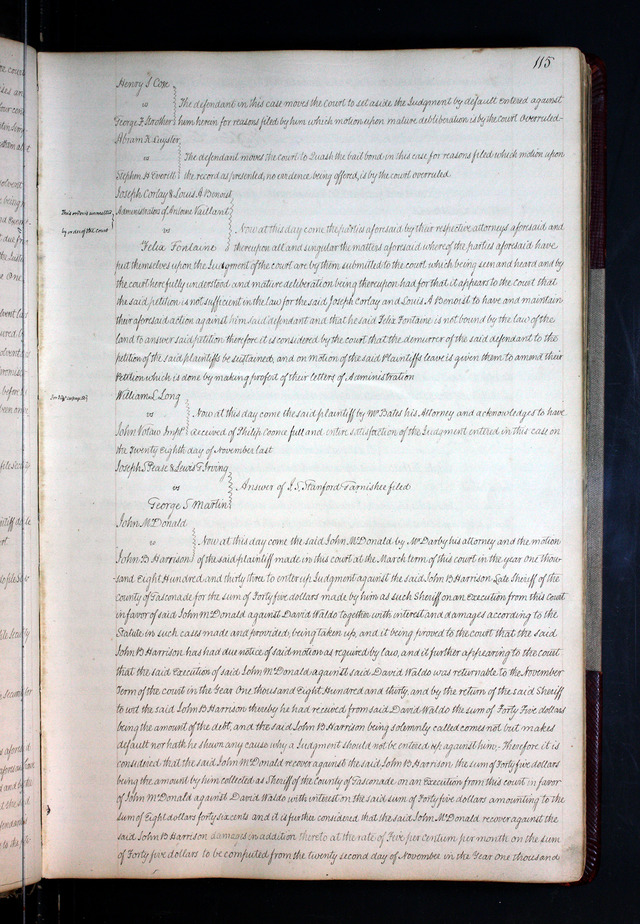 115
Henry S Coxe
vs The defendant in this case moves the Court to set aside the Judgment by default entered against
George F Strother him herein for reasons filed by him which motion upon mature debliberation is by the court overruled
Abram K Luyster
vs The defendant moves the court to Quash the bail bond in this case for reasons filed which motion upon
Stephen H Everill the record as presented, no evidence being offered, is by the court overruled
Joseph Corlay & Louis A Benoist
Administrators of Antoine Vaillant
This order is
by order of the court
vs Now at this day come the parties aforsaid by their respective attorneys aforesaid and
Felix Fontaine thereupon all and singular the matters aforsaid whereof the parties aforsaid have
put themselves upon the Judgment of the court are by them submitted to the court which being seen and heard and by
the court here fully understood and mature deliberation being thereupon had for that it appears to the court that
the said petition is not sufficent in the law for the said Joseph Corlay and Louis A Benoist to have and maintain
their aforesaid action against him said defendant and that he said Felix Fontaine is not bound by the law of the
land to answer said petition therefore it is considered by the court that the demurrer of the said defendant to the
petition of the said plaintiffs be sustained, and on motion of the said Plaintiffs leave is given them to amend their
Petition which is done by making profert of their letters of Administration
William L Long
vs Now at this day come the said plaintiff by Mr Bates his Attorney and acknowledges to have
John Votaw Impl received of Philip Coonce full and entire satisfaction of the Judgment entered in this case on
the Twenty Eighth day of November last
Joseph S Pease & Lewis T Irving
vs Answer of J. S. Stanford Garnishee filed
George S Martin
John McDonald
vs Now at this day come the said John McDonald by Mr Darby his attorney and the motion
John B Harrison of the said plaintiff made in this court at the March term of this court in the year one thou-
sand Eight Hundred and thirty three to enter up Judgment against the said John B Harrison Late Sheriff of the
County of Gasconade for the sum of Forty five dollars made by him as such Sheriff on an Execution from this Court
in favor of said John McDonald against David Waldo together with interest and damages according to the
Statute in such cases made and provided, being taken up, and it being proved to the court that the said
John B Harrison has had due notice of said motion as required by law, and it further appearing to the court
that the said Execution of said John McDonald against said David Waldo was returnable to the November
Term of the court in the Year One thousand Eight Hundred and thirty, and by the return of the said Sheriff
to wit the said John B Harrison thereby he had received from said David Waldo the sum of Forty Five dollars
being the amount of the debt, and the said John B Harrison being solemnly called comes not but makes
default nor hath he shewn any cause why a Judgment should not be entered up against him - Therefore it is
considered that the said John McDonald recover against the said John B Harrison the sum of Forty five dollars
being the amount by him collected as Sheriff of the County of Gasconade on an Execution from this court in favor
of John McDonald against David Waldo with interest on the said sum of Forty five dollars amounting to the
sum of Eight dollars forty six cents and it is further considered that the said John McDonald recover against the
said John B Harrison damages in addition thereto at the rate of Five per centum per month on the sum
of Forty five dollars to be computed from the twenty second day of November in the Year One thousand